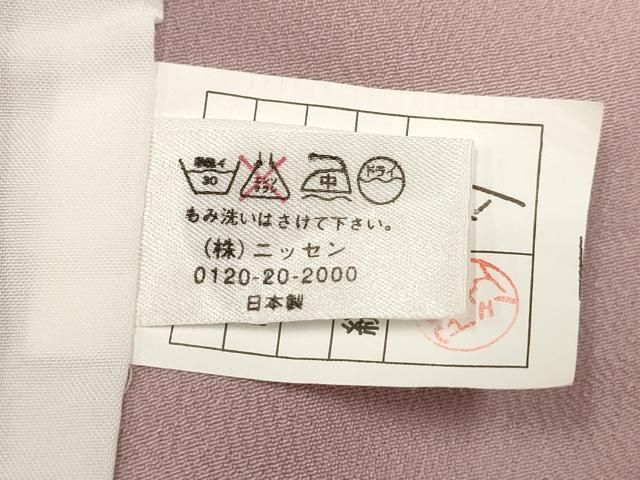 30
エンソ
サラシ
中
ドライ
もみ洗いはさけて下さい。
(株)ニッセン
0120-20-2000
日本製